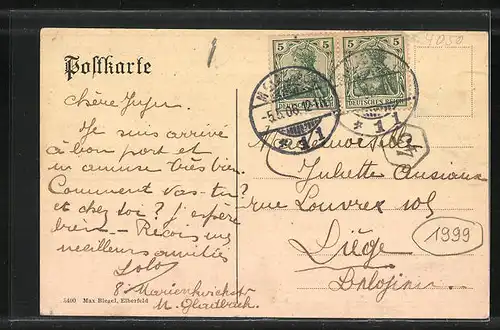 4050
5 5 5 5
DEUTSCHES REICH
-5.5.06.12-1N.
* 1 1
* 1 1
Postkarte
chère
Je suis arrivé
à bon port et
m'amuse très bien.
Comment vas-tu?
et chez toi? j'espère
bien – Reçois mes
meilleurs amitiés
Lolo
8 Marienkirchstr
M. Gladbach
Mademoiselle
Juliette
rue Louvrex 105
Liège
1999
5400 Max Biegel, Elberfeld